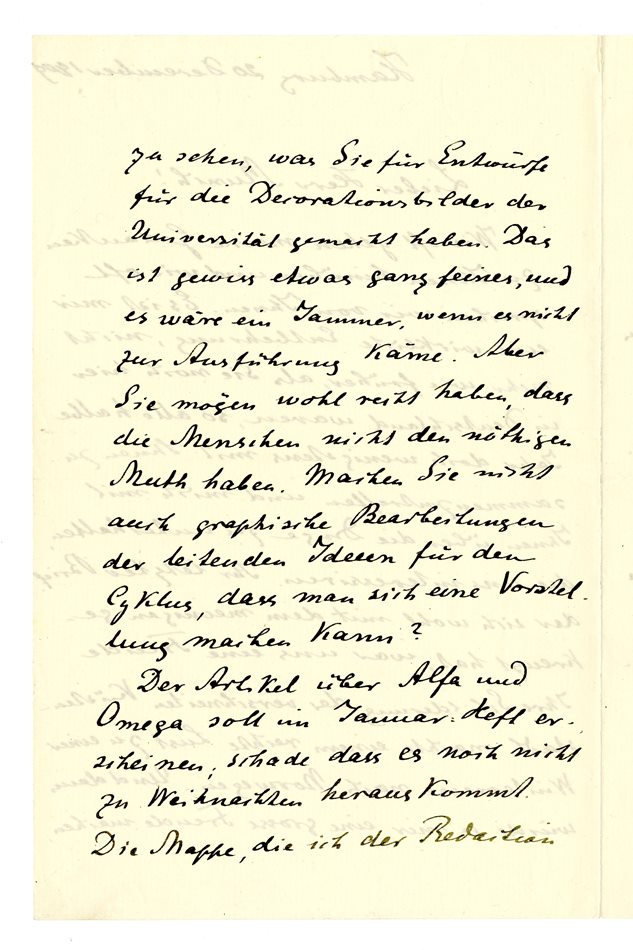 zu sehen, was Sie für Entwürfe
für die Decorationsbilder der
Universität gemacht haben. Das
ist gewiss etwas ganz feines, und
es wäre ein Jammer, wenn es nicht
zur Ausführung käme. Aber
Sie mögen wohl recht haben, dass
die Menschen nicht den nöthigen
Muth haben. Machen Sie nicht
auch graphische Bearbeitungen
der leitenden Ideeen für den
Cyklus, dass man sich eine Vorstel-
lung machen kann?
Der Artikel über Alfa und
Omega soll im Januar-Heft er-
scheinen, schade dass es noch nicht
zu Weihnachten herauskommt.
Die Mappe, die ich der Redaction